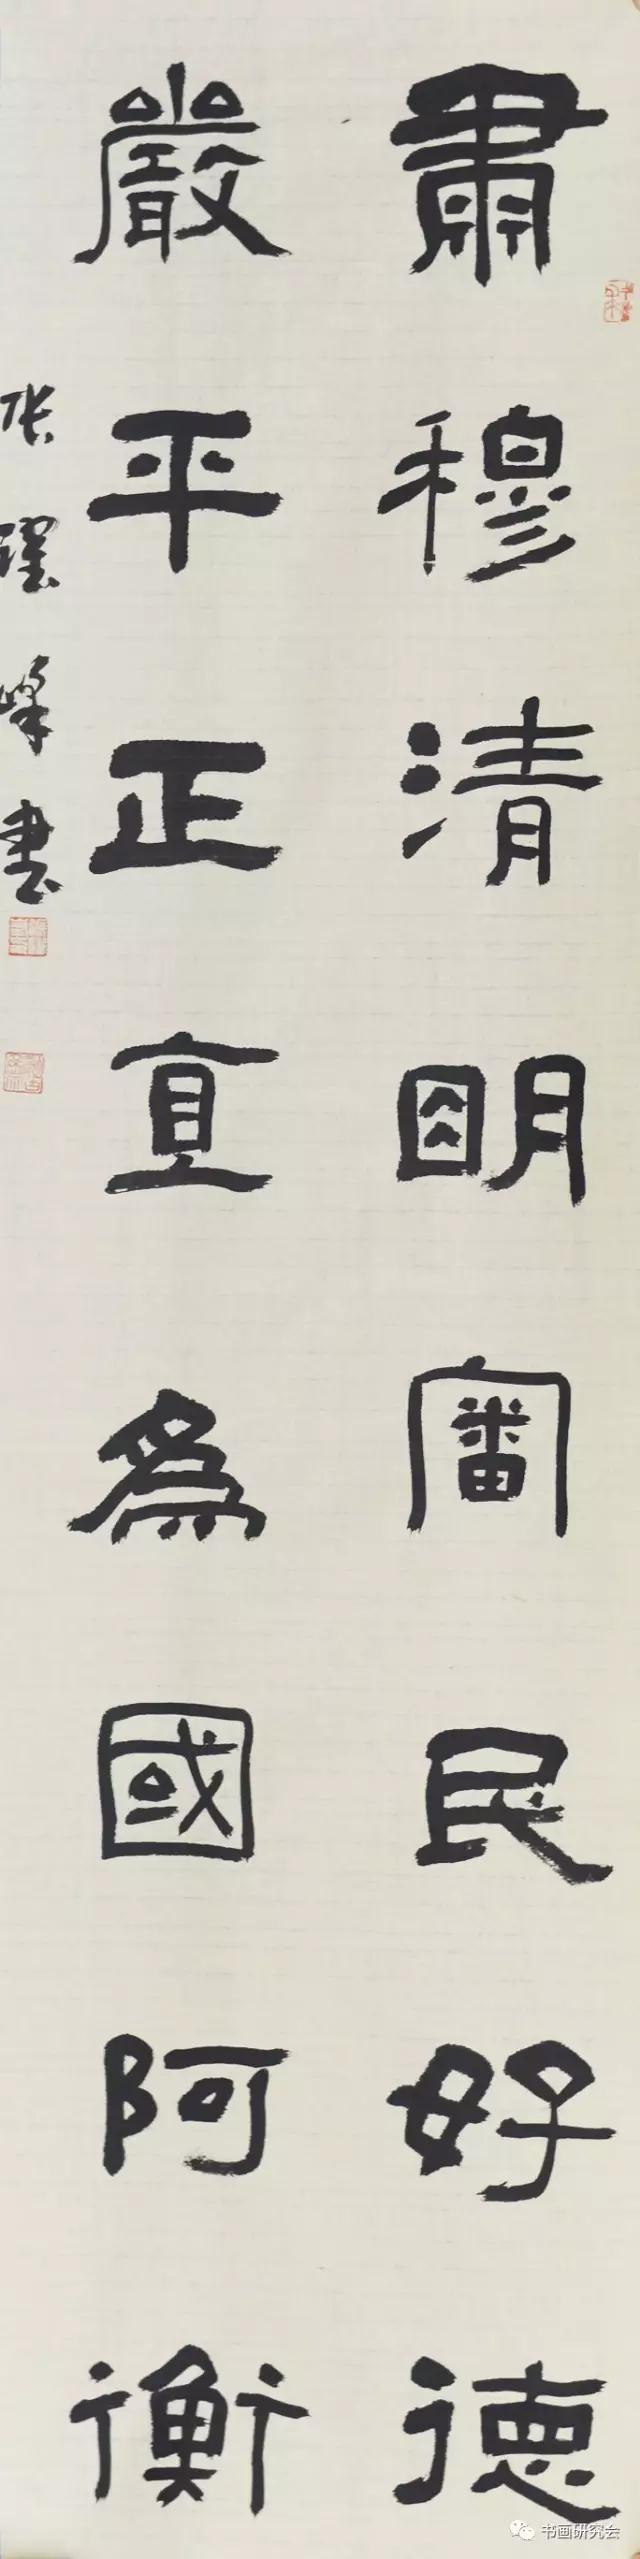 肅穆清明審民好德
嚴平正直為國阿衡
张耀峰书
书画研究会